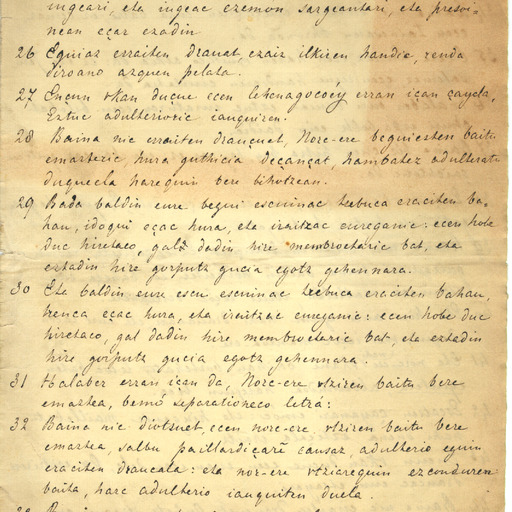 ingeari, eta ingeac ezemon sargeantari, eta presoi-
nean eçar ezadin
26 Eguiaz erraiten draunat, ezaiz ilkiren handic, renda
diroano azquen pelata.
27 Ençun vkan duçue ecen lehenagocoéy erran içan çayela,
Eztuc adulterioric iauquiren.
28 Baina nic erraiten drauçuet, Norc-ere beguiesten baitu
emazteric, hura guthicia deçançat, hambatez adulterat
duquecla harequin bere bihotzean.
29 Bada baldin eure begui escuinac trebuca eraciten ba-
hau, idoqui eçac hura, eta iraitzac eureganic: ecen hobe
duc hiretaco, gal dadin hire membroetaric bat, eta
eztadin hire gorputz gucia egotz gehennara.
30 Eta baldin eure escu escuinac trebuca eraciten bahau,
trenca eçac hura, eta iraitzac eureganic: ecen hobe duc
hiretaco, gal dadin hire membroetaric bat, eta eztadin
hire gorputz gucia egotz gehennara.
31 Halaber erran içan da, Norc-ere vtziren baitu bere
emaztea, bemó separationeco letrá:
32 Baina nic diotsuet, ecen norc-ere vtziren baitu bere
emaztea, salbu paillardiçaré causaz, adulterio eguin
eraciten draucala: eta nor-ere vtziarequin ezconduren
baita, harc adulterio iauquiten duela.